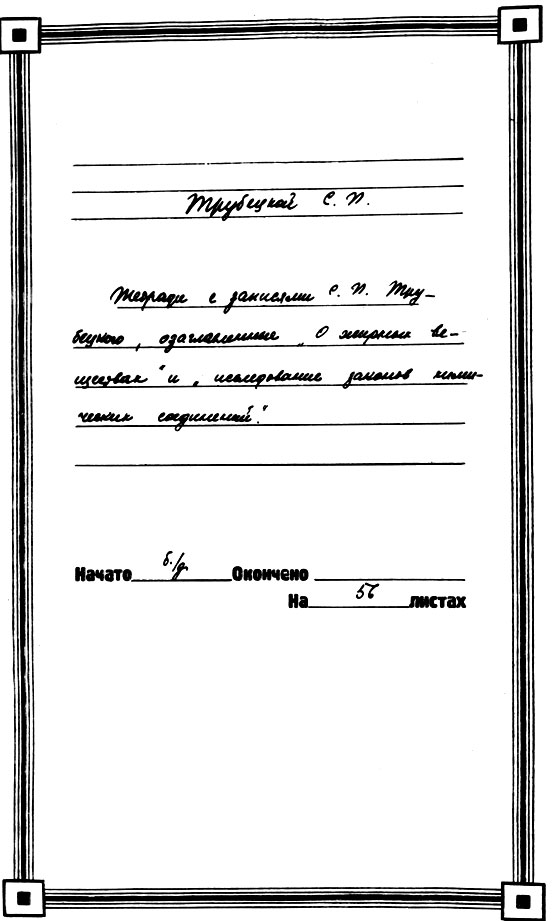 Трубецкой С. П.
Тетради с записями С. П. Тру-
бецкого, озаглавленные „О жирных ве-
ществах" и „исследование законов хими-
ческих соединений".
Начато б/д Окончено
На 56 листах